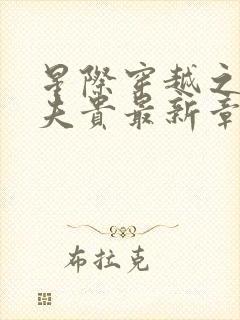 星際穿越之
夫貴最新章
布拉克